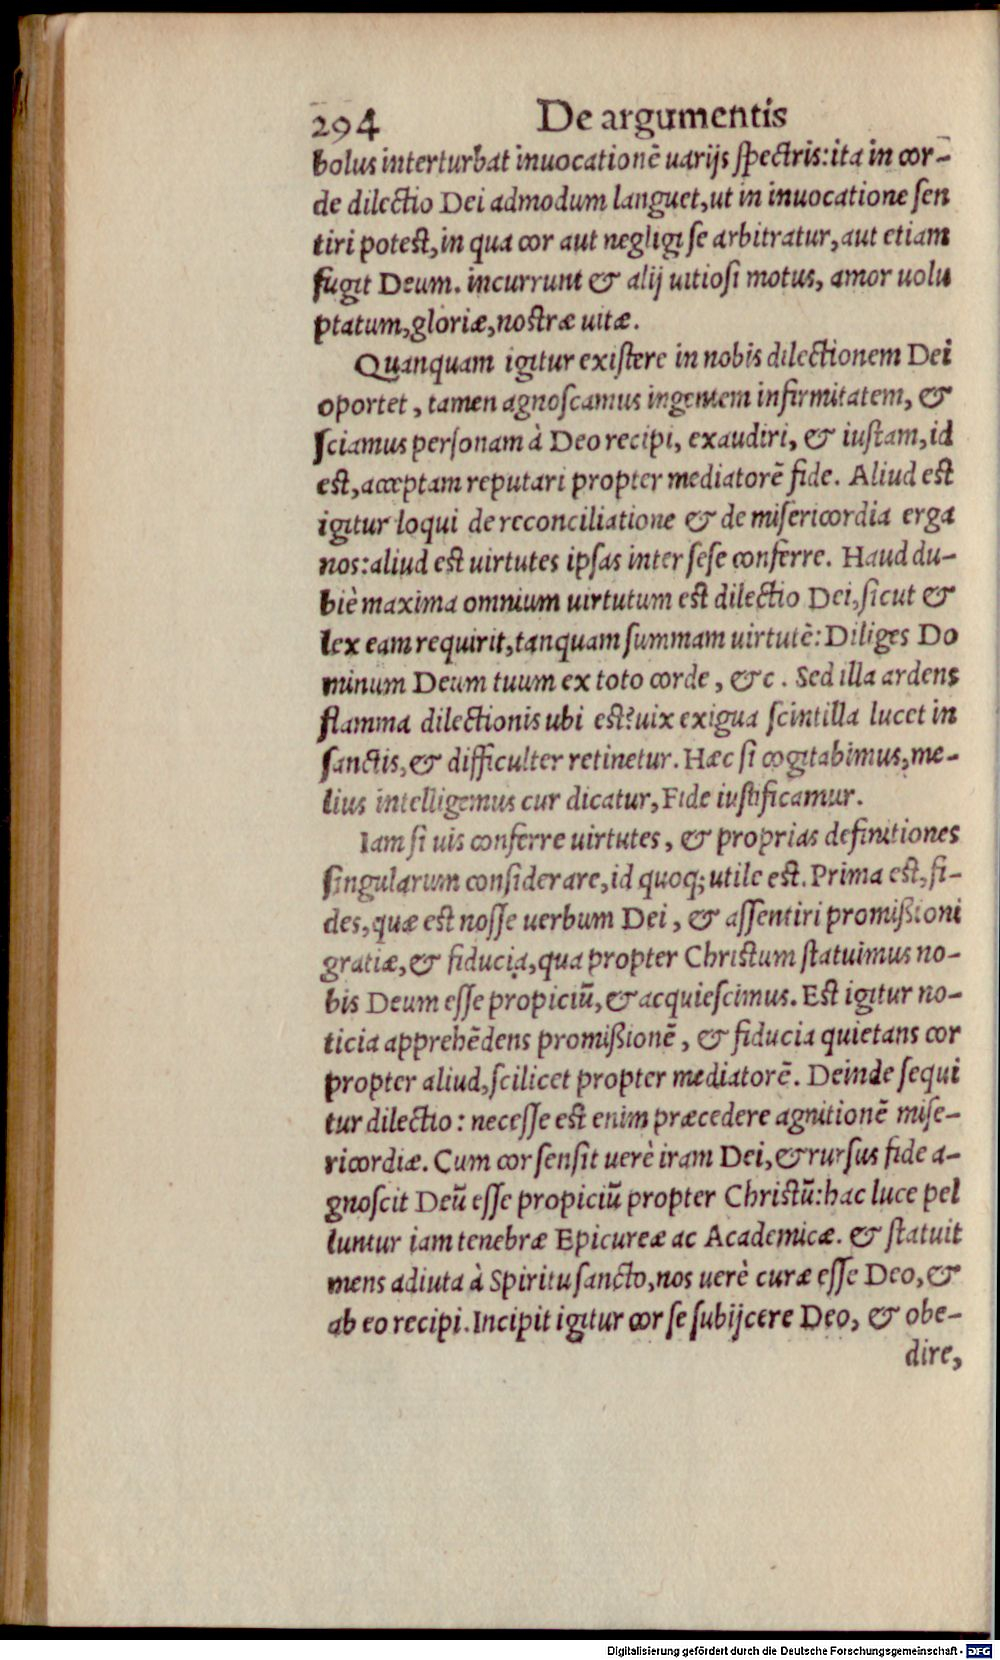 294 De argumentis
bolus interturbat inuocationē uarijs ſpectris: ita in cor-
de dilectio Dei admodum languet, ut in inuocatione ſen
tiri poteſt, in qua cor aut negligi ſe arbitratur, aut etiam
fugit Deum. incurrunt & alij uitioſi motus, amor uolu
ptatum, gloriæ, noſtræ uitæ.
Quanquam igitur exiſtere in nobis dilectionem Dei
oportet, tamen agnoſcamus ingentem infirmitatem, &
ſciamus perſonam à Deo recipi, exaudiri, & iuſtam, id
eſt, acceptam reputari propter mediatorē fide. Aliud eſt
igitur loqui de reconciliatione & de miſericordia erga
nos: aliud eſt uirtutes ipſas inter ſeſe conferre. Haud du-
biè maxima omnium uirtutum eſt dilectio Dei, ſicut &
lex eam requirit, tanquam ſummam uirtutē: Diliges Do
minum Deum tuum ex toto corde, &c. Sed illa ardens
flamma dilectionis ubi eſt? uix exigua ſcintilla lucet in
ſanctis, & difficulter retinetur. Hæc ſi cogitabimus, me-
lius intelligemus cur dicatur, Fide iuſtificamur.
Iam ſi uis conferre uirtutes, & proprias definitiones
ſingularum conſiderare, id quoq; utile eſt. Prima eſt, fi-
des, quæ eſt noſſe uerbum Dei, & aſſentiri promißioni
gratiæ, & fiducia, qua propter Chriſtum ſtatuimus no-
bis Deum eſſe propiciū, & acquieſcimus. Eſt igitur no-
ticia apprehēdens promißionē, & fiducia quietans cor
propter aliud, ſcilicet propter mediatorē. Deinde ſequi
tur dilectio: neceſſe eſt enim præcedere agnitionē miſe-
ricordiæ. Cum cor ſenſit uerè iram Dei, & rurſus fide a-
gnoſcit Deū eſſe propiciū propter Chriſtū: hac luce pel
luntur iam tenebræ Epicureæ ac Academicæ. & ſtatuit
mens adiuta à Spiritu ſancto, nos uerè curæ eſſe Deo, &
ab eo recipi. Incipit igitur cor ſe ſubijcere Deo, & obe-
dire,
Digitalisierung gefördert durch die Deutsche Forschungsgemeinschaft - DFG